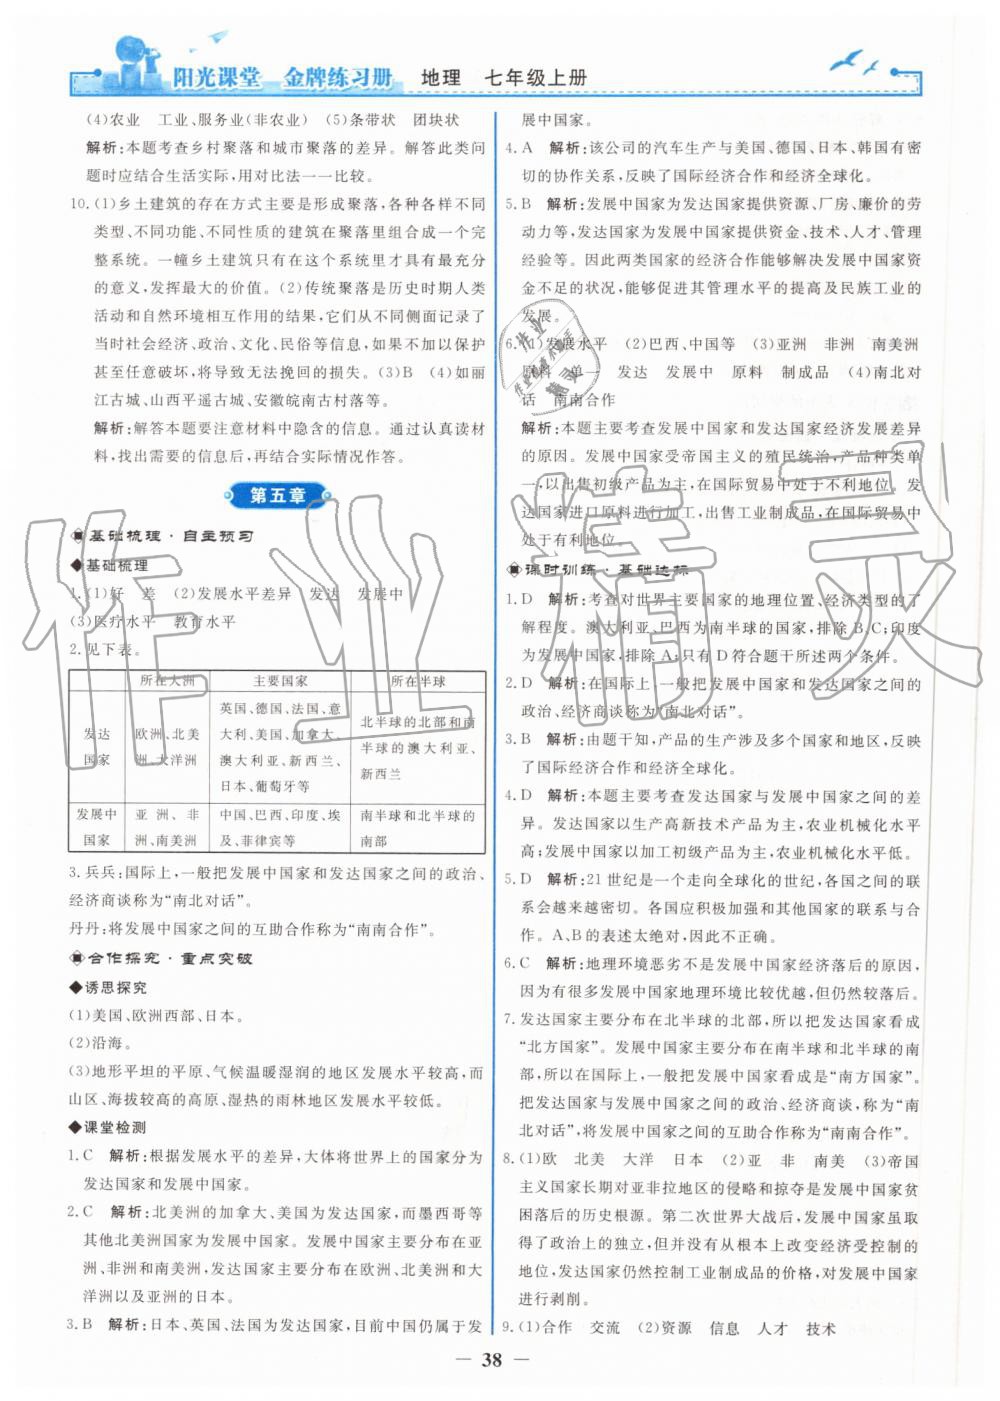 阳光课堂 金牌练习册 地理 七年级上册
(4)农业 工业、服务业(非农业) (5)条带状 团块状
解析:本题考查乡村聚落和城市聚落的差异。解答此类问
题时应结合生活实际,用对比法一一比较。
10.(1)乡土建筑的存在方式主要是形成聚落,各种各样不同
类型、不同功能、不同性质的建筑在聚落里组合成一个完
整系统。一幢乡土建筑只有在这个系统里才具有最充分
的意义,发挥最大的价值。(2)传统聚落是历史时期人类
活动和自然环境相互作用的结果,它们从不同侧面记录了
当时社会经济、政治、文化、民俗等信息,如果不加以保护
甚至任意破坏,将导致无法挽回的损失。(3)B (4)如丽
江古城、山西平遥古城、安徽皖南古村落等。
解析:解答本题要注意材料中隐含的信息。通过认真读材
料,找出需要的信息后,再结合实际情况作答。
第五章
基础梳理·自主预习
◆基础梳理
1.(1)好 差 (2)发展水平差异 发达 发展中
(3)医疗水平 教育水平
2.见下表。
所在大洲 主要国家 所在半球
发达国家 欧洲、北美洲、大洋洲 英国、德国、法国、意大利、美国、加拿大、澳大利亚、新西兰、日本、葡萄牙等 北半球的北部和南半球的澳大利亚、新西兰
发展中国家 亚洲、非洲、南美洲 中国、巴西、印度、埃及、菲律宾等 南半球和北半球的南部
3.兵兵:国际上,一般把发展中国家和发达国家之间的政治、
经济商谈称为“南北对话”。
丹丹:将发展中国家之间的互助合作称为“南南合作”。
合作探究·重点突破
◆诱思探究
(1)美国、欧洲西部、日本。
(2)沿海。
(3)地形平坦的平原、气候温暖湿润的地区发展水平较高,而
山区、海拔较高的高原、湿热的雨林地区发展水平较低。
◆课堂检测
1.C 解析:根据发展水平的差异,大体将世界上的国家分为
发达国家和发展中国家。
2.C 解析:北美洲的加拿大、美国为发达国家,而墨西哥等
其他北美洲国家为发展中国家。发展中国家主要分布在亚
洲、非洲和南美洲,发达国家主要分布在欧洲、北美洲和大
洋洲以及亚洲的日本。
3.B 解析:日本、英国、法国为发达国家,目前中国仍属于发
展中国家。
4.A 解析:该公司的汽车生产与美国、德国、日本、韩国有密
切的协作关系,反映了国际经济合作和经济全球化。
5.B 解析:发展中国家为发达国家提供资源、厂房、廉价的劳
动力等,发达国家为发展中国家提供资金、技术、人才、管理
经验等。因此两类国家的经济合作能够解决发展中国家资
金不足的状况,能够促进其管理水平的提高及民族工业的
发展。
6.(1)发展水平 (2)巴西、中国等 (3)亚洲 非洲 南美洲
原料 单一 发达 发展中 原料 制成品 (4)南北对
话 南南合作
解析:本题主要考查发展中国家和发达国家经济发展差异
的原因。发展中国家受帝国主义的殖民统治,产品种类单
一,以出售初级产品为主,在国际贸易中处于不利地位。发
达国家进口原料进行加工,出售工业制成品,在国际贸易中
处于有利地位。
课时训练·基础达标
1.D 解析:考查对世界主要国家的地理位置、经济类型的了
解程度。澳大利亚、巴西为南半球的国家,排除B、C;印度
为发展中国家,排除A;只有D符合题干所述两个条件。
2.D 解析:在国际上,一般把发展中国家和发达国家之间的
政治、经济商谈称为“南北对话”。
3.B 解析:由题干知,产品的生产涉及多个国家和地区,反映
了国际经济合作和经济全球化。
4.D 解析:本题主要考查发达国家与发展中国家之间的差
异。发达国家以生产高新技术产品为主,农业机械化水平
高;发展中国家以加工初级产品为主,农业机械化水平低。
5.D 解析:21世纪是一个走向全球化的世纪,各国之间的联
系会越来越密切。各国应积极加强和其他国家的联系与合
作。A、B的表述太绝对,因此不正确。
6.C 解析:地理环境恶劣不是发展中国家经济落后的原因,
因为有很多发展中国家地理环境比较优越,但仍然较落后。
7.发达国家主要分布在北半球的北部,所以把发达国家看成
“北方国家”。发展中国家主要分布在南半球和北半球的南
部,所以在国际上,一般把发展中国家看成是“南方国家”。
把发达国家与发展中国家之间的政治、经济商谈,称为“南
北对话”,将发展中国家之间的互助合作称为“南南合作”。
8.(1)欧 北美 大洋 日本 (2)亚 非 南美 (3)帝国
主义国家长期对亚非拉地区的侵略和掠夺是发展中国家贫
困落后的历史根源。第二次世界大战后,发展中国家虽取
得了政治上的独立,但并没有从根本上改变经济受控制的
地位,发达国家仍然控制工业制成品的价格,对发展中国家
进行剥削。
9.(1)合作 交流 (2)资源 信息 人才 技术
— 38 —
作业精灵